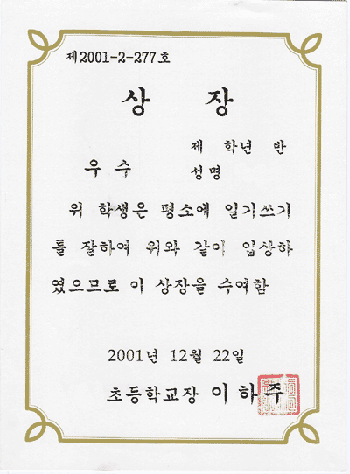 제2001-2-277호
상 장
제 학년 반
우 수
성명
위 학생은 평소에 일기쓰기
를 잘하여 위와 같이 입상하
였으므로 이 상장을 수여함
2001년 12월 22일
초등학교장 이 하 주